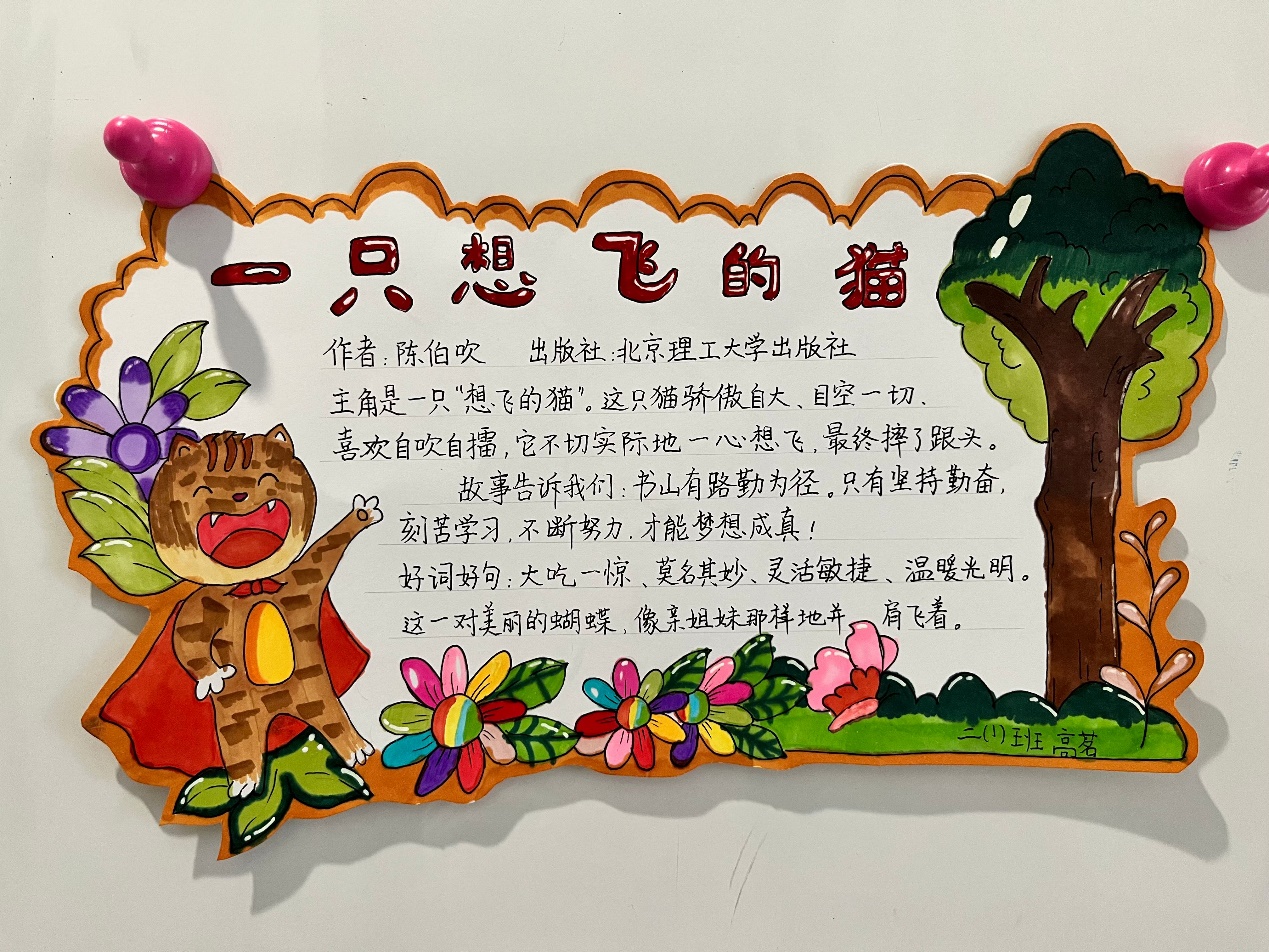 一只想飞的猫
作者：陈伯吹 出版社：北京理工大学出版社
主角是一只“想飞的猫”。这只猫骄傲自大、目空一切、
喜欢自吹自擂，它不切实际地一心想飞，最终摔了跟头。
故事告诉我们：书山有路勤为径。只有坚持勤奋，
刻苦学习，不断努力，才能梦想成真！
好词好句：大吃一惊、莫名其妙、灵活敏捷、温暖光明。
这一对美丽的蝴蝶，像亲姐妹那样地并肩飞着。
二(1)班 高茗